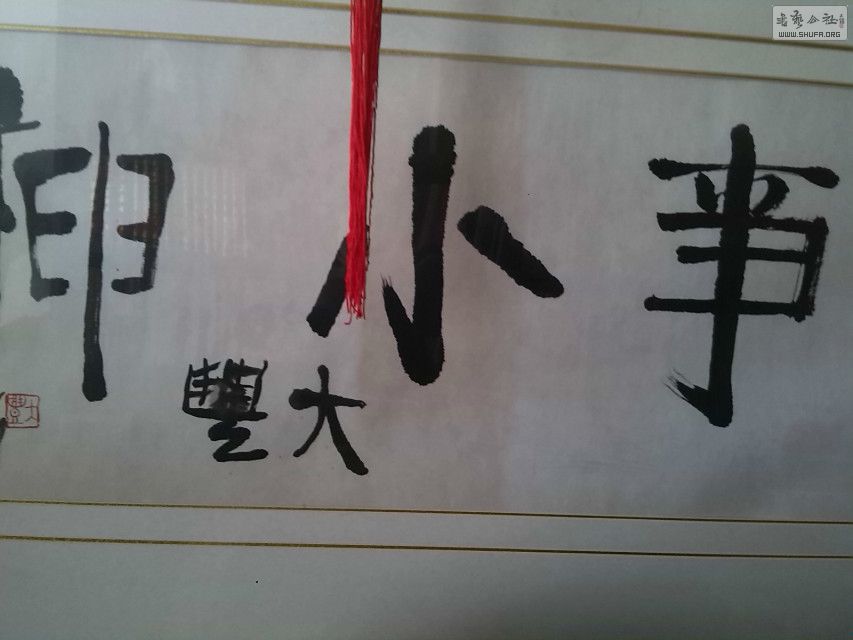 事小
大豐
書藝公社
WWW.SHUFA.ORG